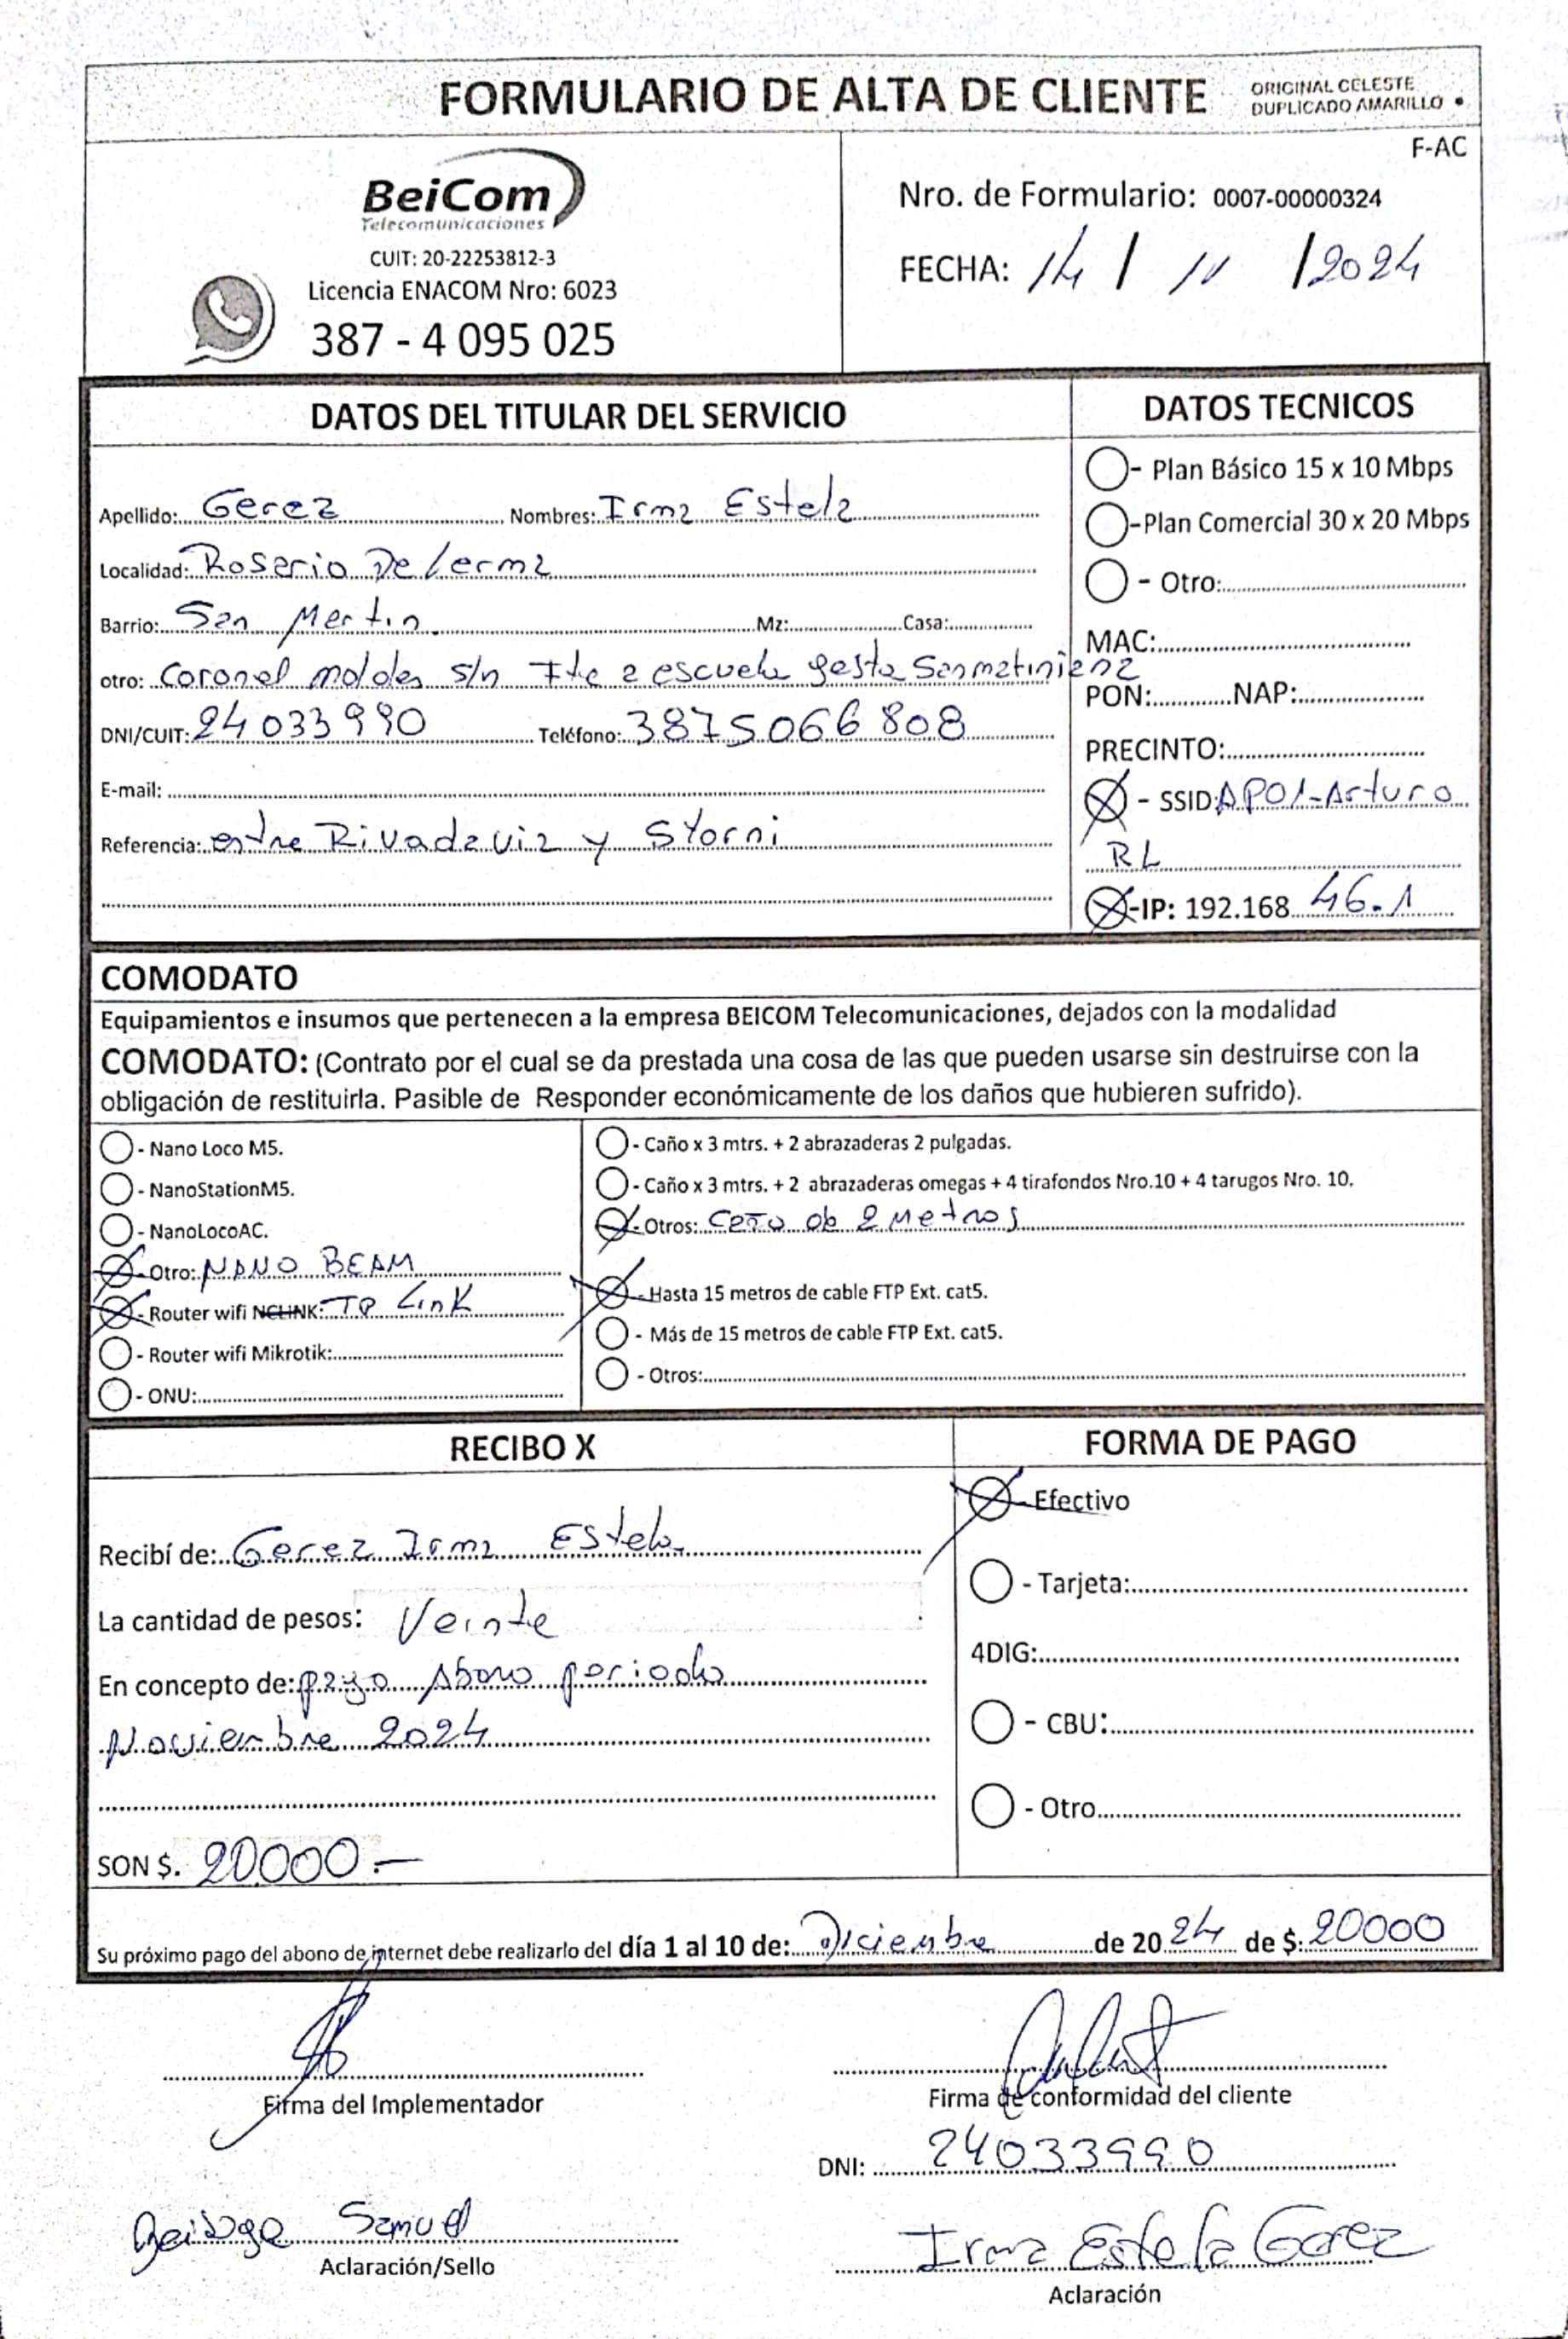 FORMULARIO DE ALTA DE CLIENTE
ORIGINAL CELESTE
DUPLICADO AMARILLO
F-AC
BeiCom
Telecomunicaciones
CUIT: 20-22253812-3
Licencia ENACOM Nro: 6023
387 - 4 095 025
Nro. de Formulario: 0007-00000324
FECHA: 14 / 11 / 2024
DATOS DEL TITULAR DEL SERVICIO
Apellido: Gerez Nombres: Irma Estela
Localidad: Rosario De Lerma
Barrio: San Martin. Mz: Casa:
otro: Coronel moldes s/n Fte a escuela gesta Sanmatiniana
DNI/CUIT: 24033990 Teléfono: 3875066808
E-mail:
Referencia: entre Rivadavia y Storni
DATOS TECNICOS
- Plan Básico 15 x 10 Mbps
-Plan Comercial 30 x 20 Mbps
- Otro:
MAC:
PON: NAP:
PRECINTO:
- SSID: AP01-Arturo
RL
-IP: 192.168 46.1
COMODATO
Equipamientos e insumos que pertenecen a la empresa BEICOM Telecomunicaciones, dejados con la modalidad
COMODATO: (Contrato por el cual se da prestada una cosa de las que pueden usarse sin destruirse con la
obligación de restituirla. Pasible de Responder económicamente de los daños que hubieren sufrido).
- Nano Loco M5.
- NanoStationM5.
- NanoLocoAC.
- Otro: NANO BEAM
- Router wifi NCLINK: TP Link
- Router wifi Mikrotik:
- ONU:
- Caño x 3 mtrs. + 2 abrazaderas 2 pulgadas.
- Caño x 3 mtrs. + 2 abrazaderas omegas + 4 tirafondos Nro.10 + 4 tarugos Nro. 10.
- Otros: Caño de 2 Metros
- Hasta 15 metros de cable FTP Ext. cat5.
- Más de 15 metros de cable FTP Ext. cat5.
- Otros:
RECIBO X
Recibí de: Gerez Irma Estela
La cantidad de pesos: Veinte
En concepto de: pago Abono periodo
Noviembre 2024
SON $. 20.000.—
FORMA DE PAGO
- Efectivo
- Tarjeta:
4DIG:
- CBU:
- Otro
Su próximo pago del abono de internet debe realizarlo del día 1 al 10 de: Diciembre de 20 24 de $: 20000
Firma del Implementador
Firma de conformidad del cliente
DNI: 24033990
Samuel
Aclaración/Sello
Irma Estela Gerez
Aclaración